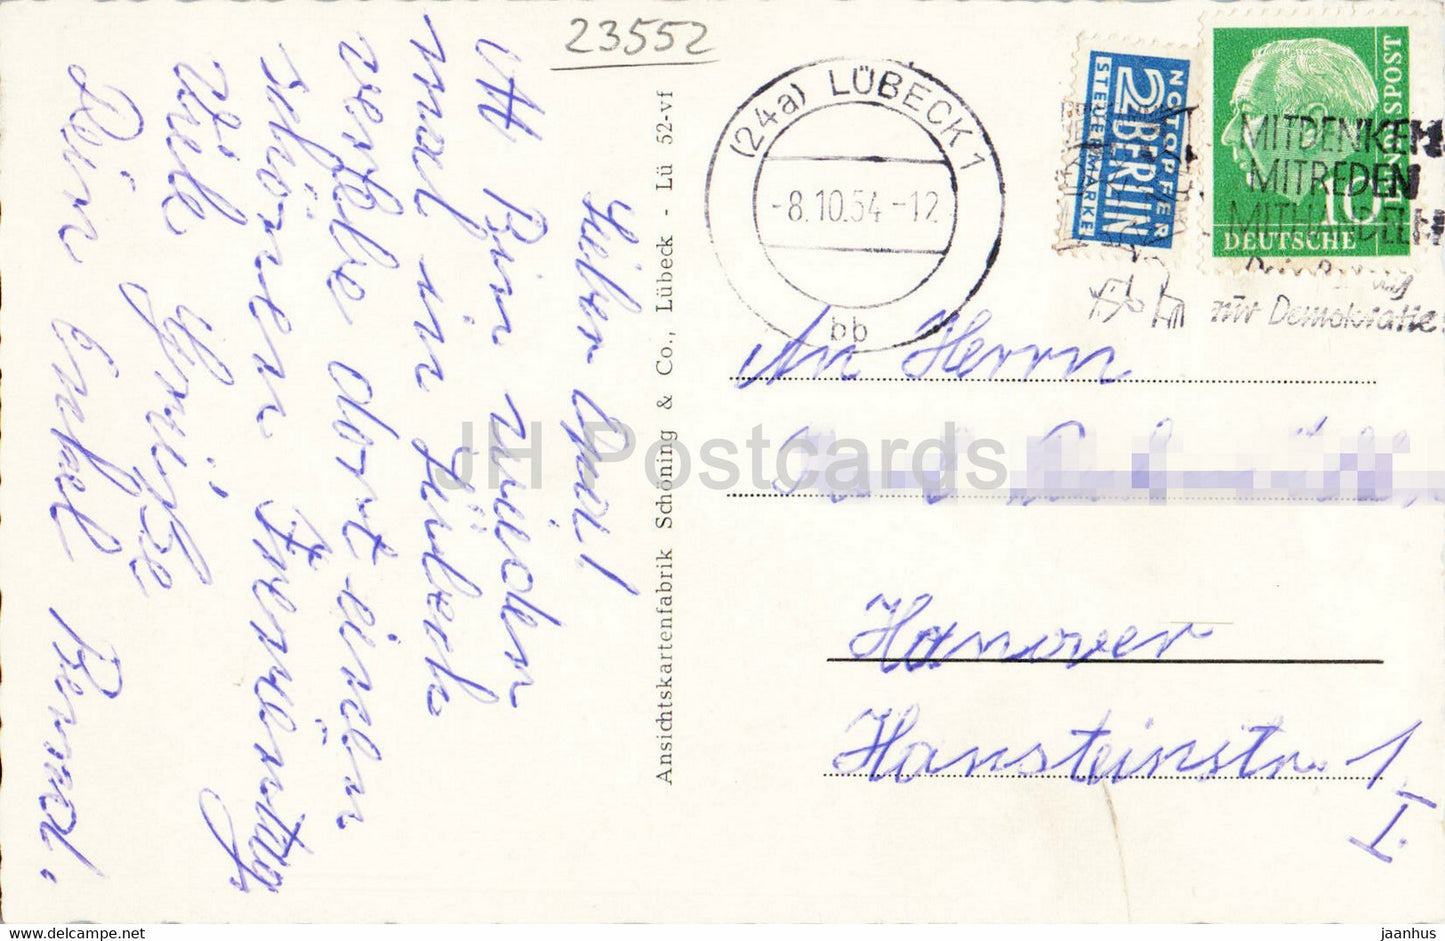 23552
(24a) LÜBECK 1
-8.10.54-12
bb
NOTOPFER
2 BERLIN
STEUERMARKE
DEUTSCHE
BUNDESPOST
10
MITDENKEN
MITREDEN
MITHANDELN
Dein Beitrag
zur Demokratie
Lieber Opa!
Bin wieder
mal in Lübeck
verlebe dort einen
schönen
Viele Grüße
Dein Enkel Bernd.
Ansichtskartenfabrik Schöning & Co., Lübeck - Lü 52-vf
An Herrn
Hanover
Hansteinstr. 1
I.
JH Postcards
www.delcampe.net
jaanhus